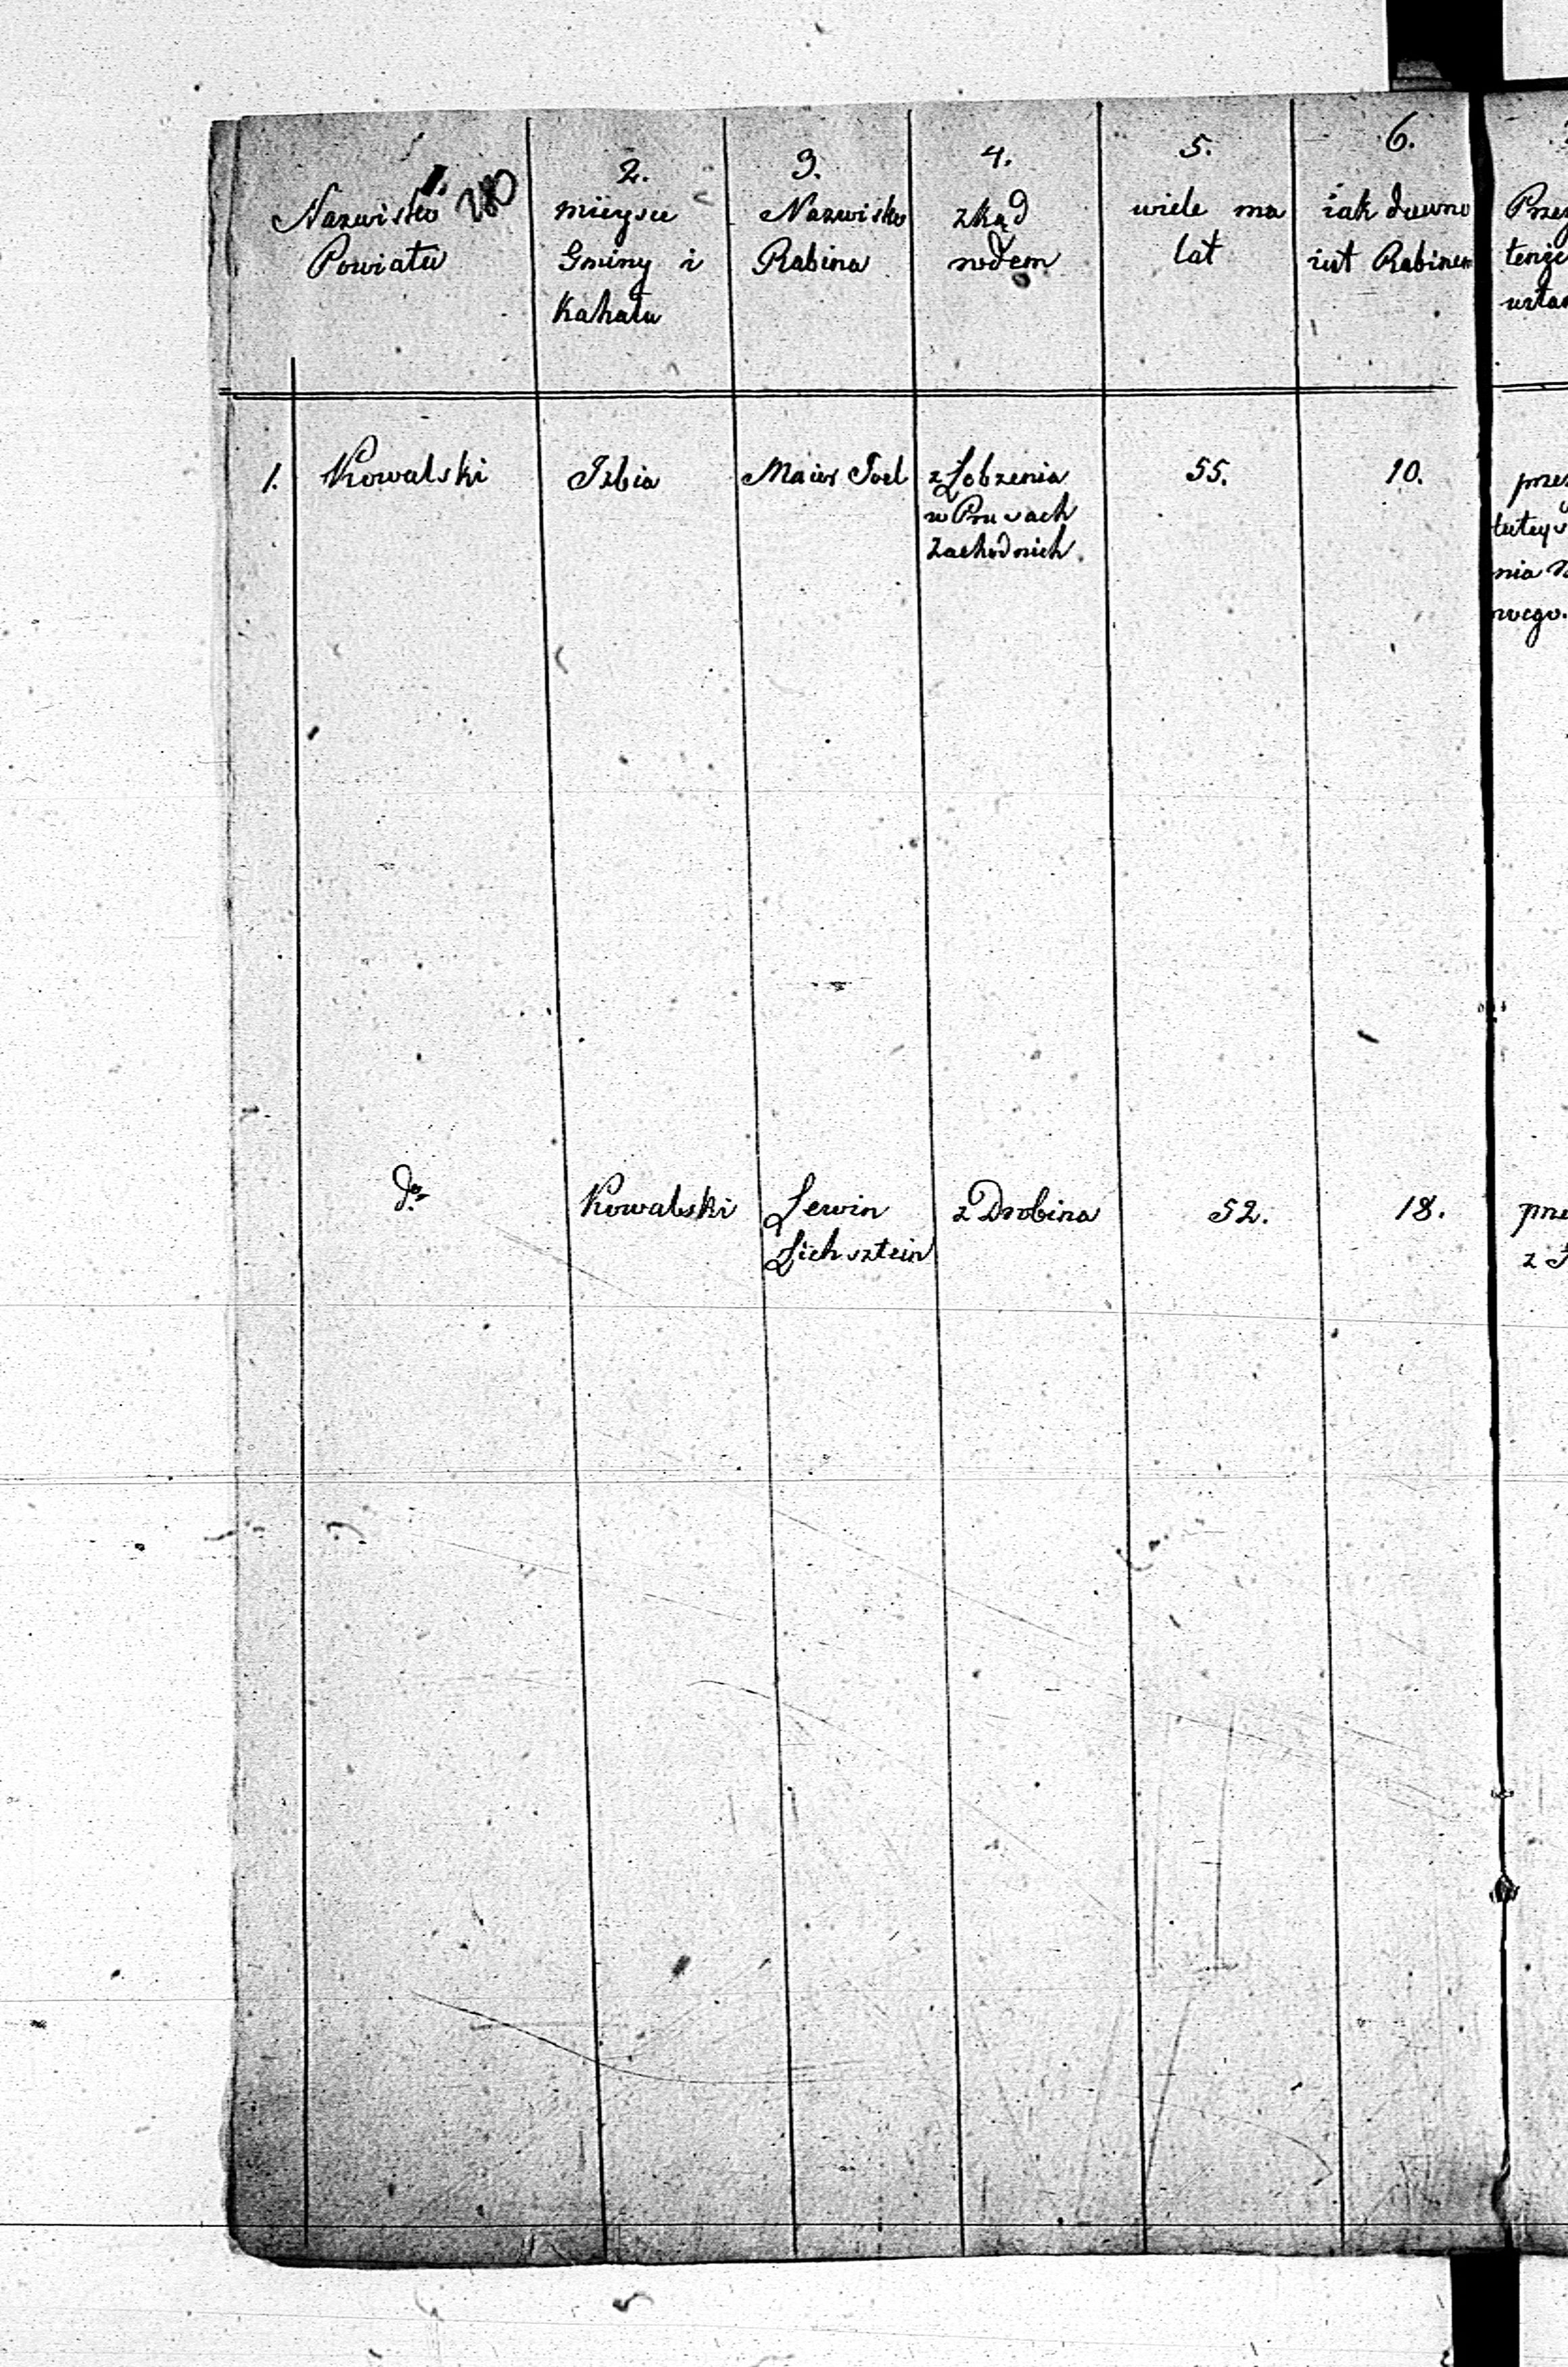 1.
Nazwisko
Powiatu
280
2.
mieysce
Gminy i
Kahału
3.
Nazwisko
Rabina
4.
zkąd
rodem
5.
wiele ma
lat
6.
iak dawno
iest Rabinem
1. Kowalski
Izbia
Maier Joel
z Łobzenia
w Prusach
Zachodnich
55.
10.
do
Kowalski
Lewin
Lichsztein
z Drobina
52.
18.